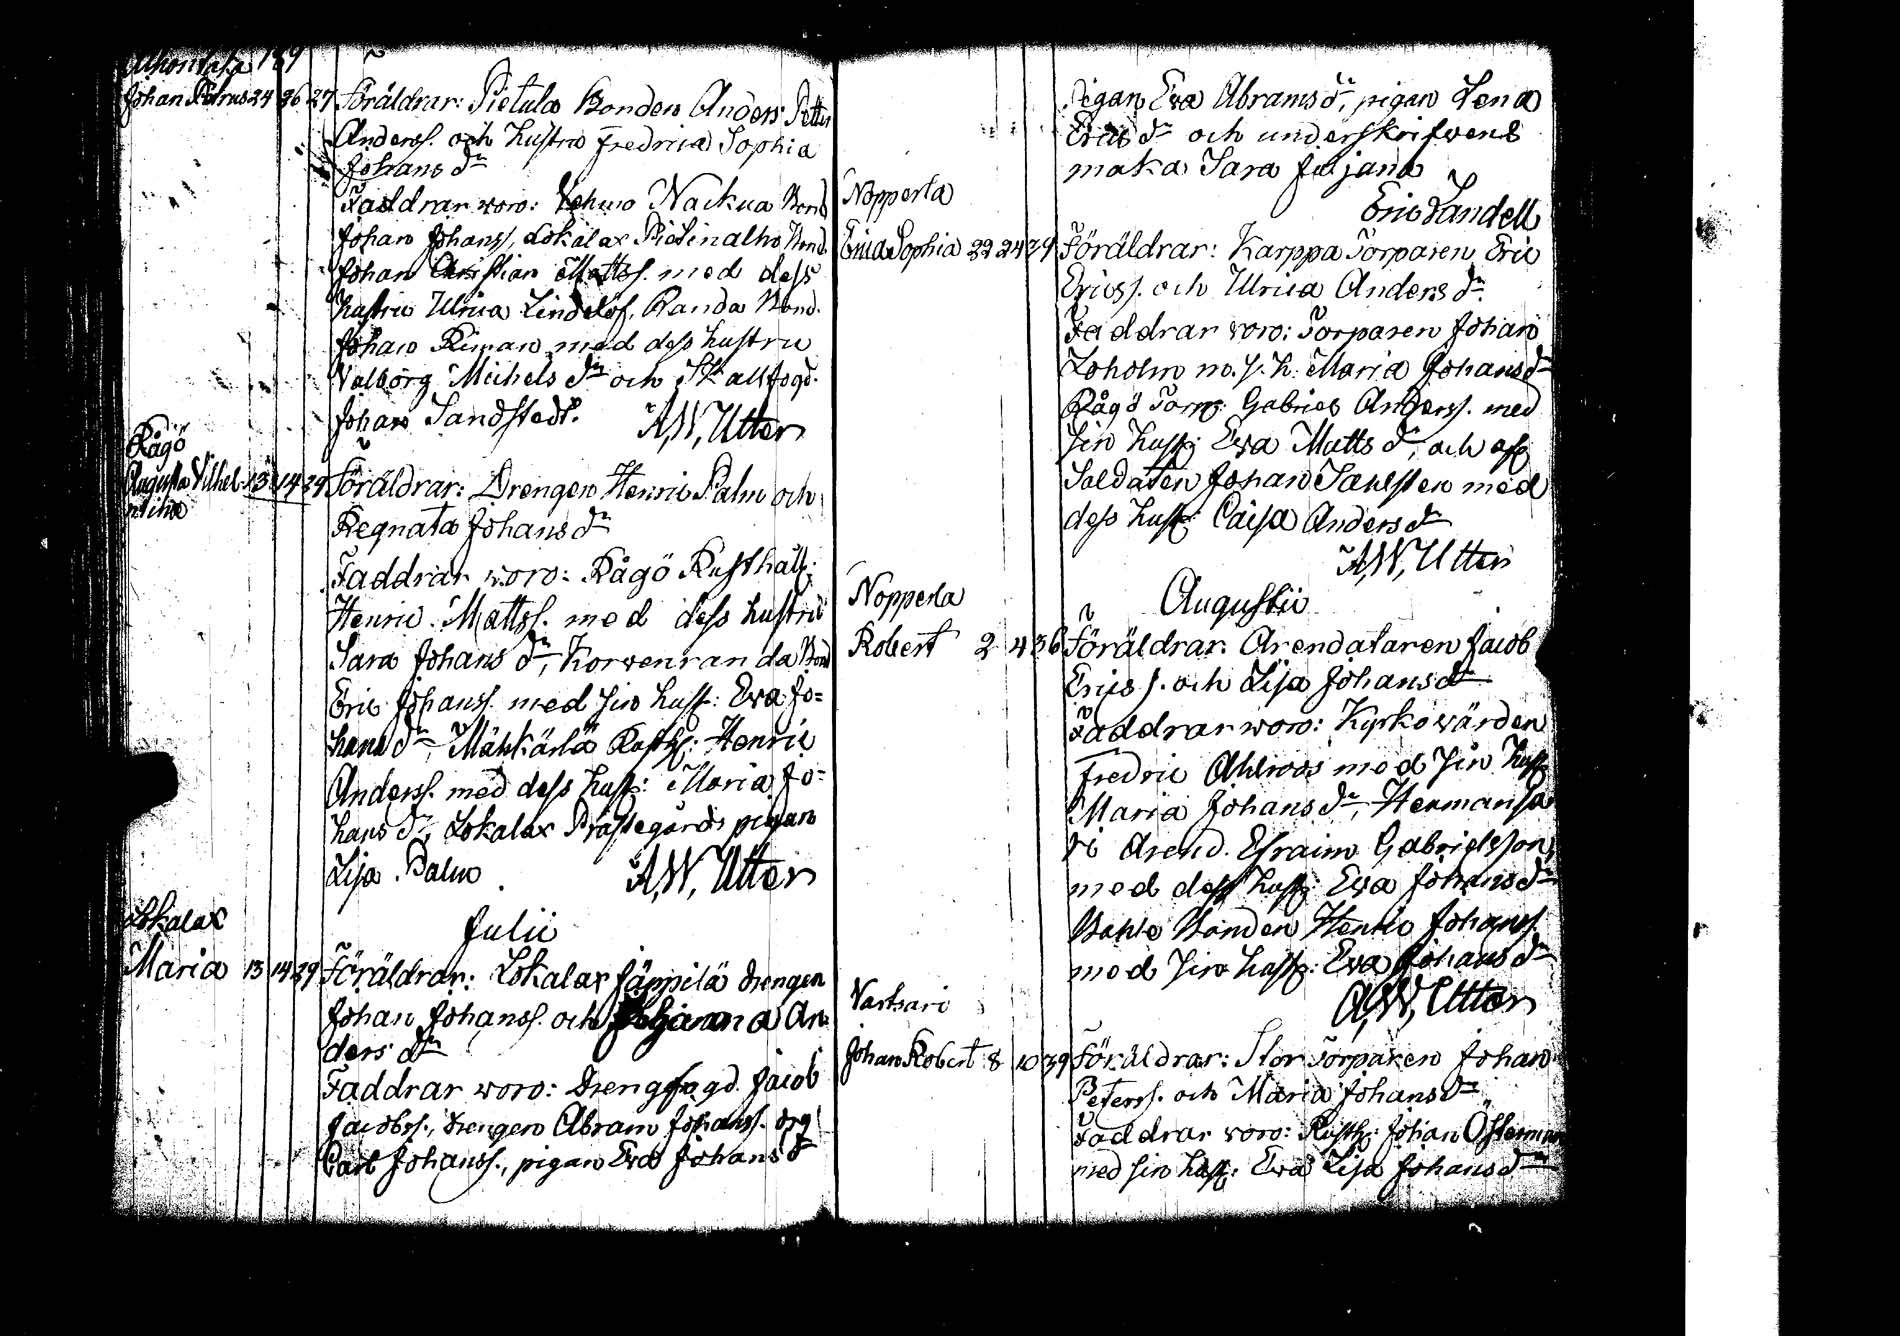 Johan Petrus 24 26 27 Föräldrar: Pietula Bonden Anders Petter
Anderss. och hustru Fredrica Sophia
Johans dr
Faddrar woro: Wehwo Nackua Bond
Johan Johanss, Lokalax Pietinalho Bond.
Johan Christian Mattss. med dess
hustru Ulrica Lindelöf, Randa Bond.
Johan Riman med dess hustru
Valborg Michels dr och Stallfogd.
Johan Sandstedt. A, W, Utter
Rågö
Augusta Vilhel- 13 14 29 Föräldrar: Drengen Henric Palm och
mtina
Regnata Johans dr
Faddrar woro: Rågö Rusthåll:
Henric Mattss. med dess hustru
Sara Johans dr, Korvenranda Bond
Eric Johanss. med sin hust: Eva Jo=
hans dr, Rusth: Henric
Anderss. med dess hust: Maria Jo=
hans dr, Lokalax Prästegårds pigan
Lisa Palm A, W, Utter
Lokalax
Julii
Maria 13 14 29 Föräldrar: Lokalax Jäppilä drengen
Johan Johanss. och Johanna An-
ders dr
Faddrar woro: Drengfogd. Jacob
Jacobss., drengen Abram Johanss. och
Carl Johanss., pigan Eva Johans dr
Pigan Eva Abrams dr, pigan Lena
Erics dr och underskrifwens
maka Sara Juljana
Eric Sandell
Nopperla
Erica Sophia 22 24 29 Föräldrar: Karppa Torparen Eric
Ericss. och Ulrica Anders dr.
Faddrar woro: Torparen Johan
Loholm m. s. h. Maria Johans dr
Rågö Torp: Gabriel Anderss. med
sin hust: Eva Matts dr, och afsk
Soldaten Johan med
dess hust: Caisa Anders dr
A, W, Utter
Nopperla
Augustii
Robert 2 4 36 Föräldrar: Arendataren Jacob
Ericss. och Lisa Johans dr
Faddrar woro: Kyrkowärden
Fredric Ahlroos med sin hust
Maria Johans dr, Hermansa
ri Arend. Efraim Gabrielsson,
med dess hust: Eva Johans dr
Bahte Bonden Henric Johanss.
med sin hust: Eva Johans dr
A, W, Utter
Vartsari
Johan Robert 8 10 39 Föräldrar: Stor Torparen Johan
Peterss. och Maria Johans dr
Faddrar woro: Rusth: Johan Österman
med sin hust: Eva Lisa Johans dr